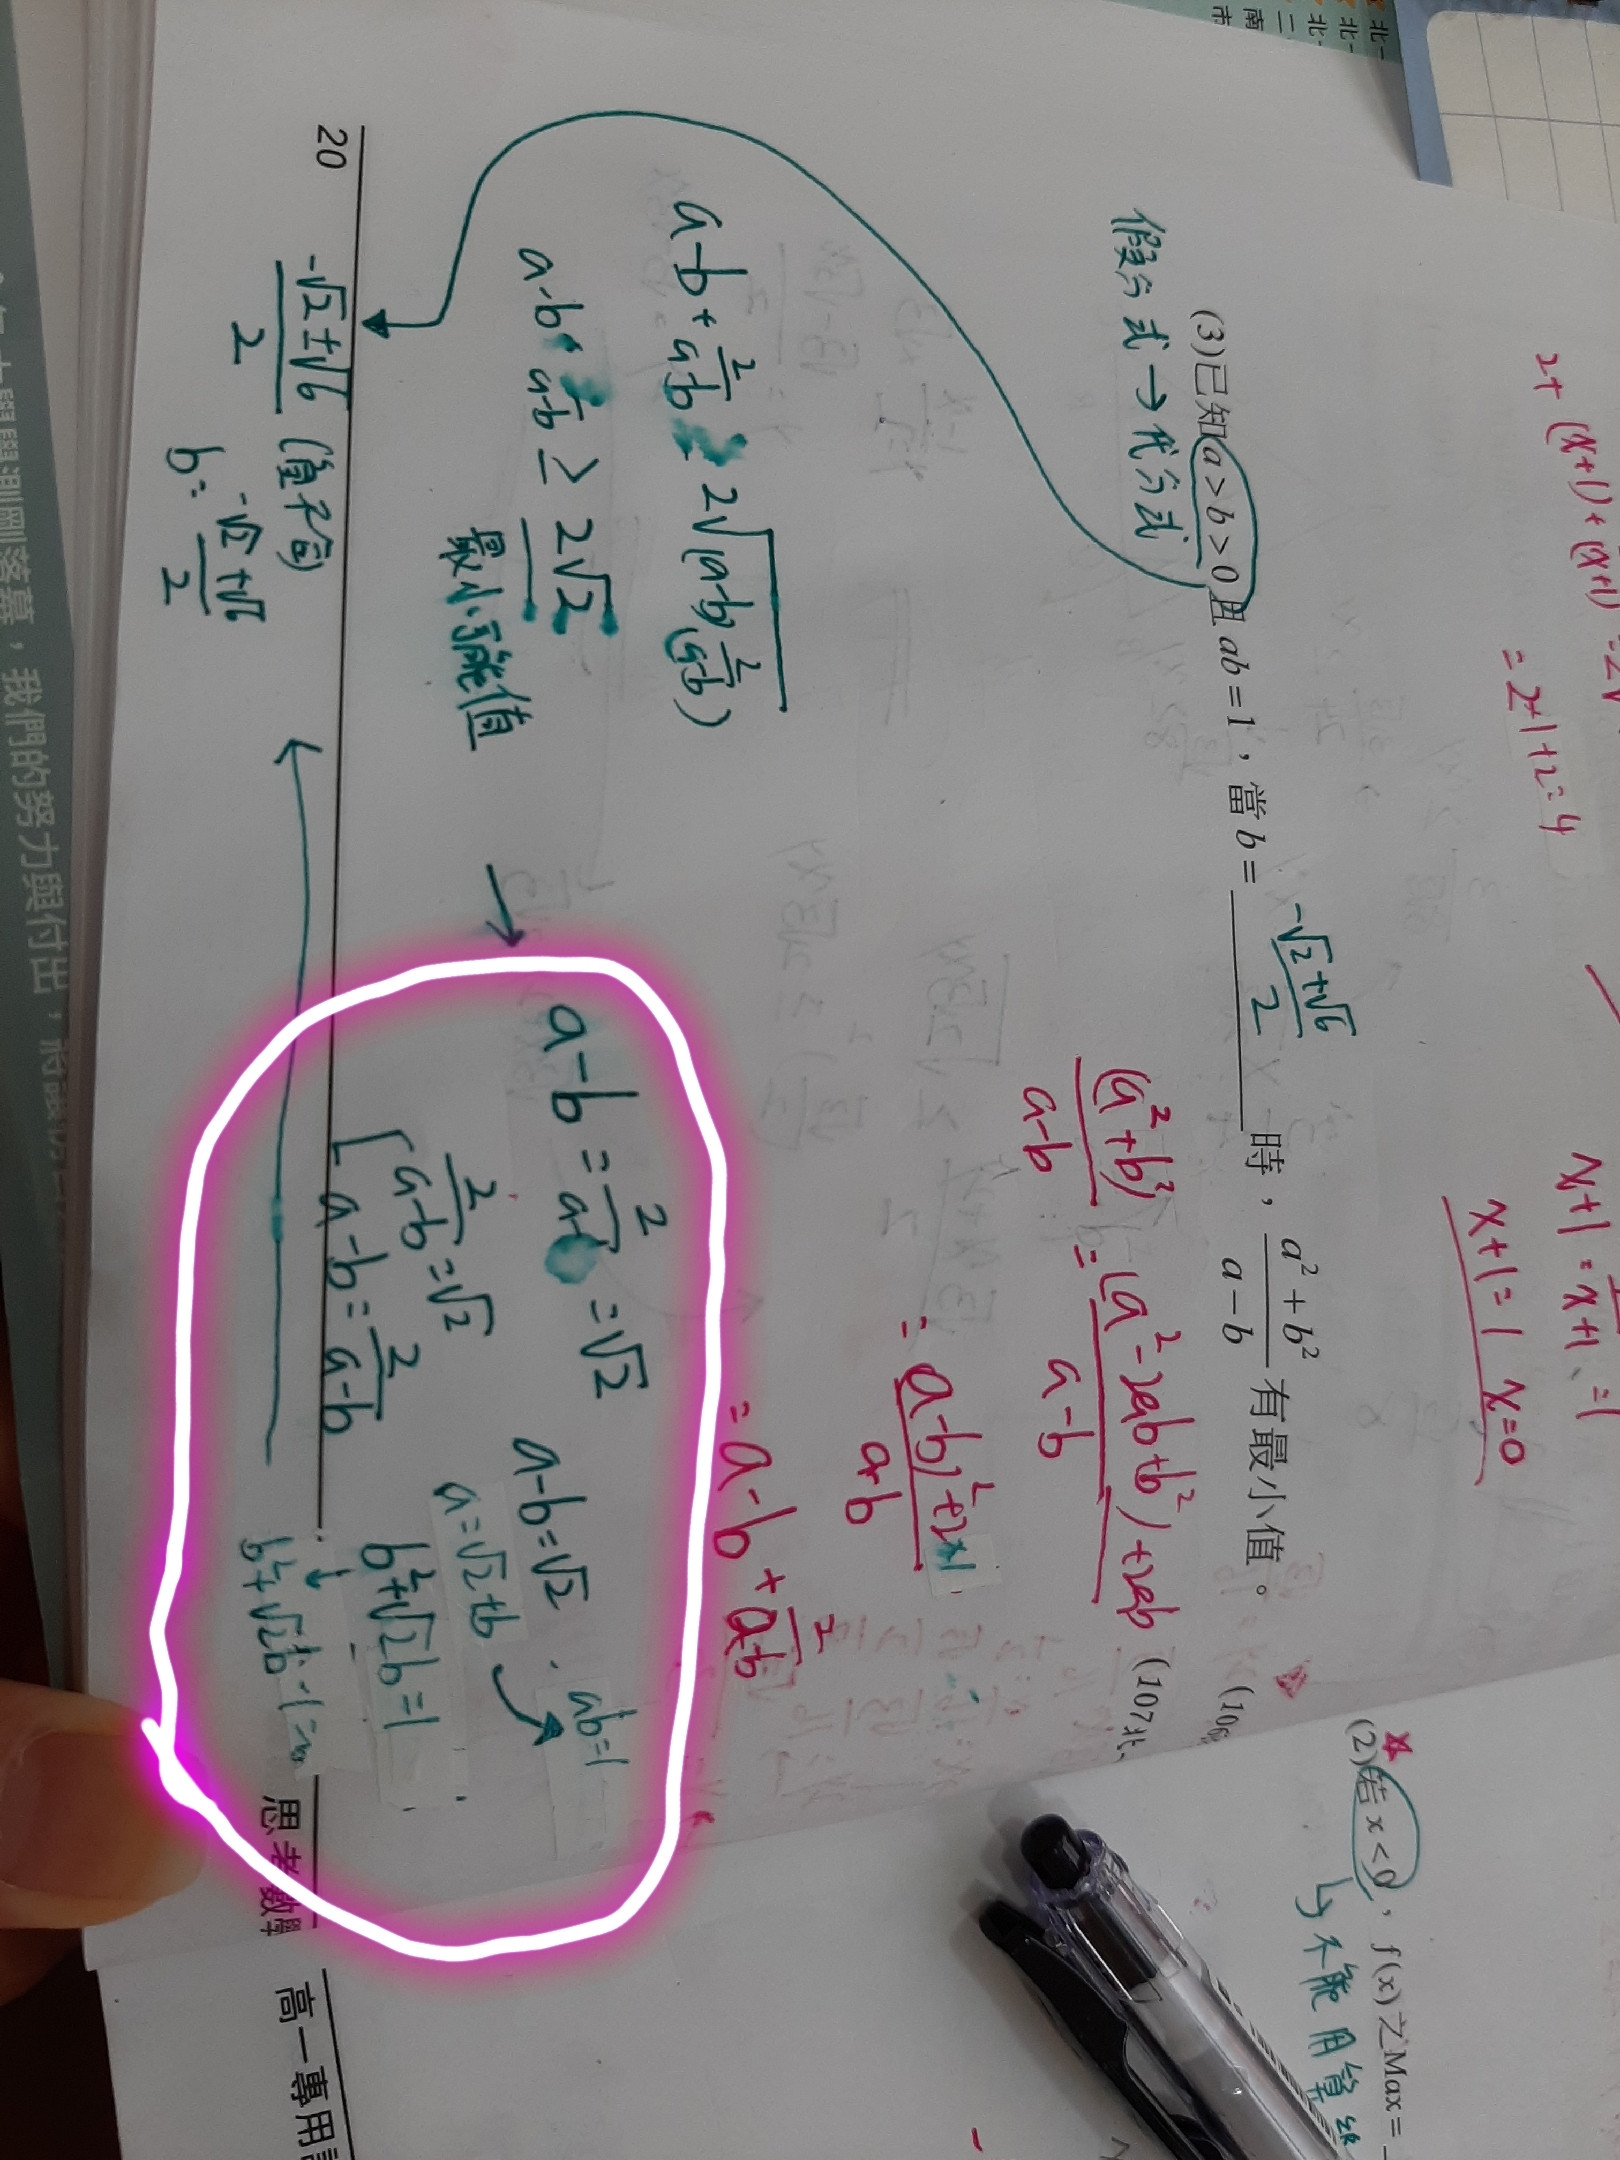 2+ (x+1) + (x+1)
= 2+1+2=4
x+1 = x+1, =1
x+1=1 x=0
(3)已知a>b>0且ab=1，當b= -√2+√6/2 時，a²+b²/a-b 有最小值。
(107北
假分式→代分式
(a²+b²)/a-b = (a²-2ab+b²)+2ab/a-b
= (a-b)²+2×1/a-b
= a-b + 2/a-b
a-b + 2/a-b ≥ 2√(a-b) 2/(a-b)
a-b+ 2/a-b ≥ 2√2
最小可能值
→ a-b = 2/a-b = √2
[ 2/a-b = √2
a-b = 2/a-b
a-b=√2
a=√2+b
ab=1
b²+√2b=1
↓
b²+√2b-1=0
-√2±√6/2 (負不合)
b= -√2+√6/2
20
思考數學 高一專用
(2)若x<0，f(x)之Max=
↳不能用算
我們的努力與付出，